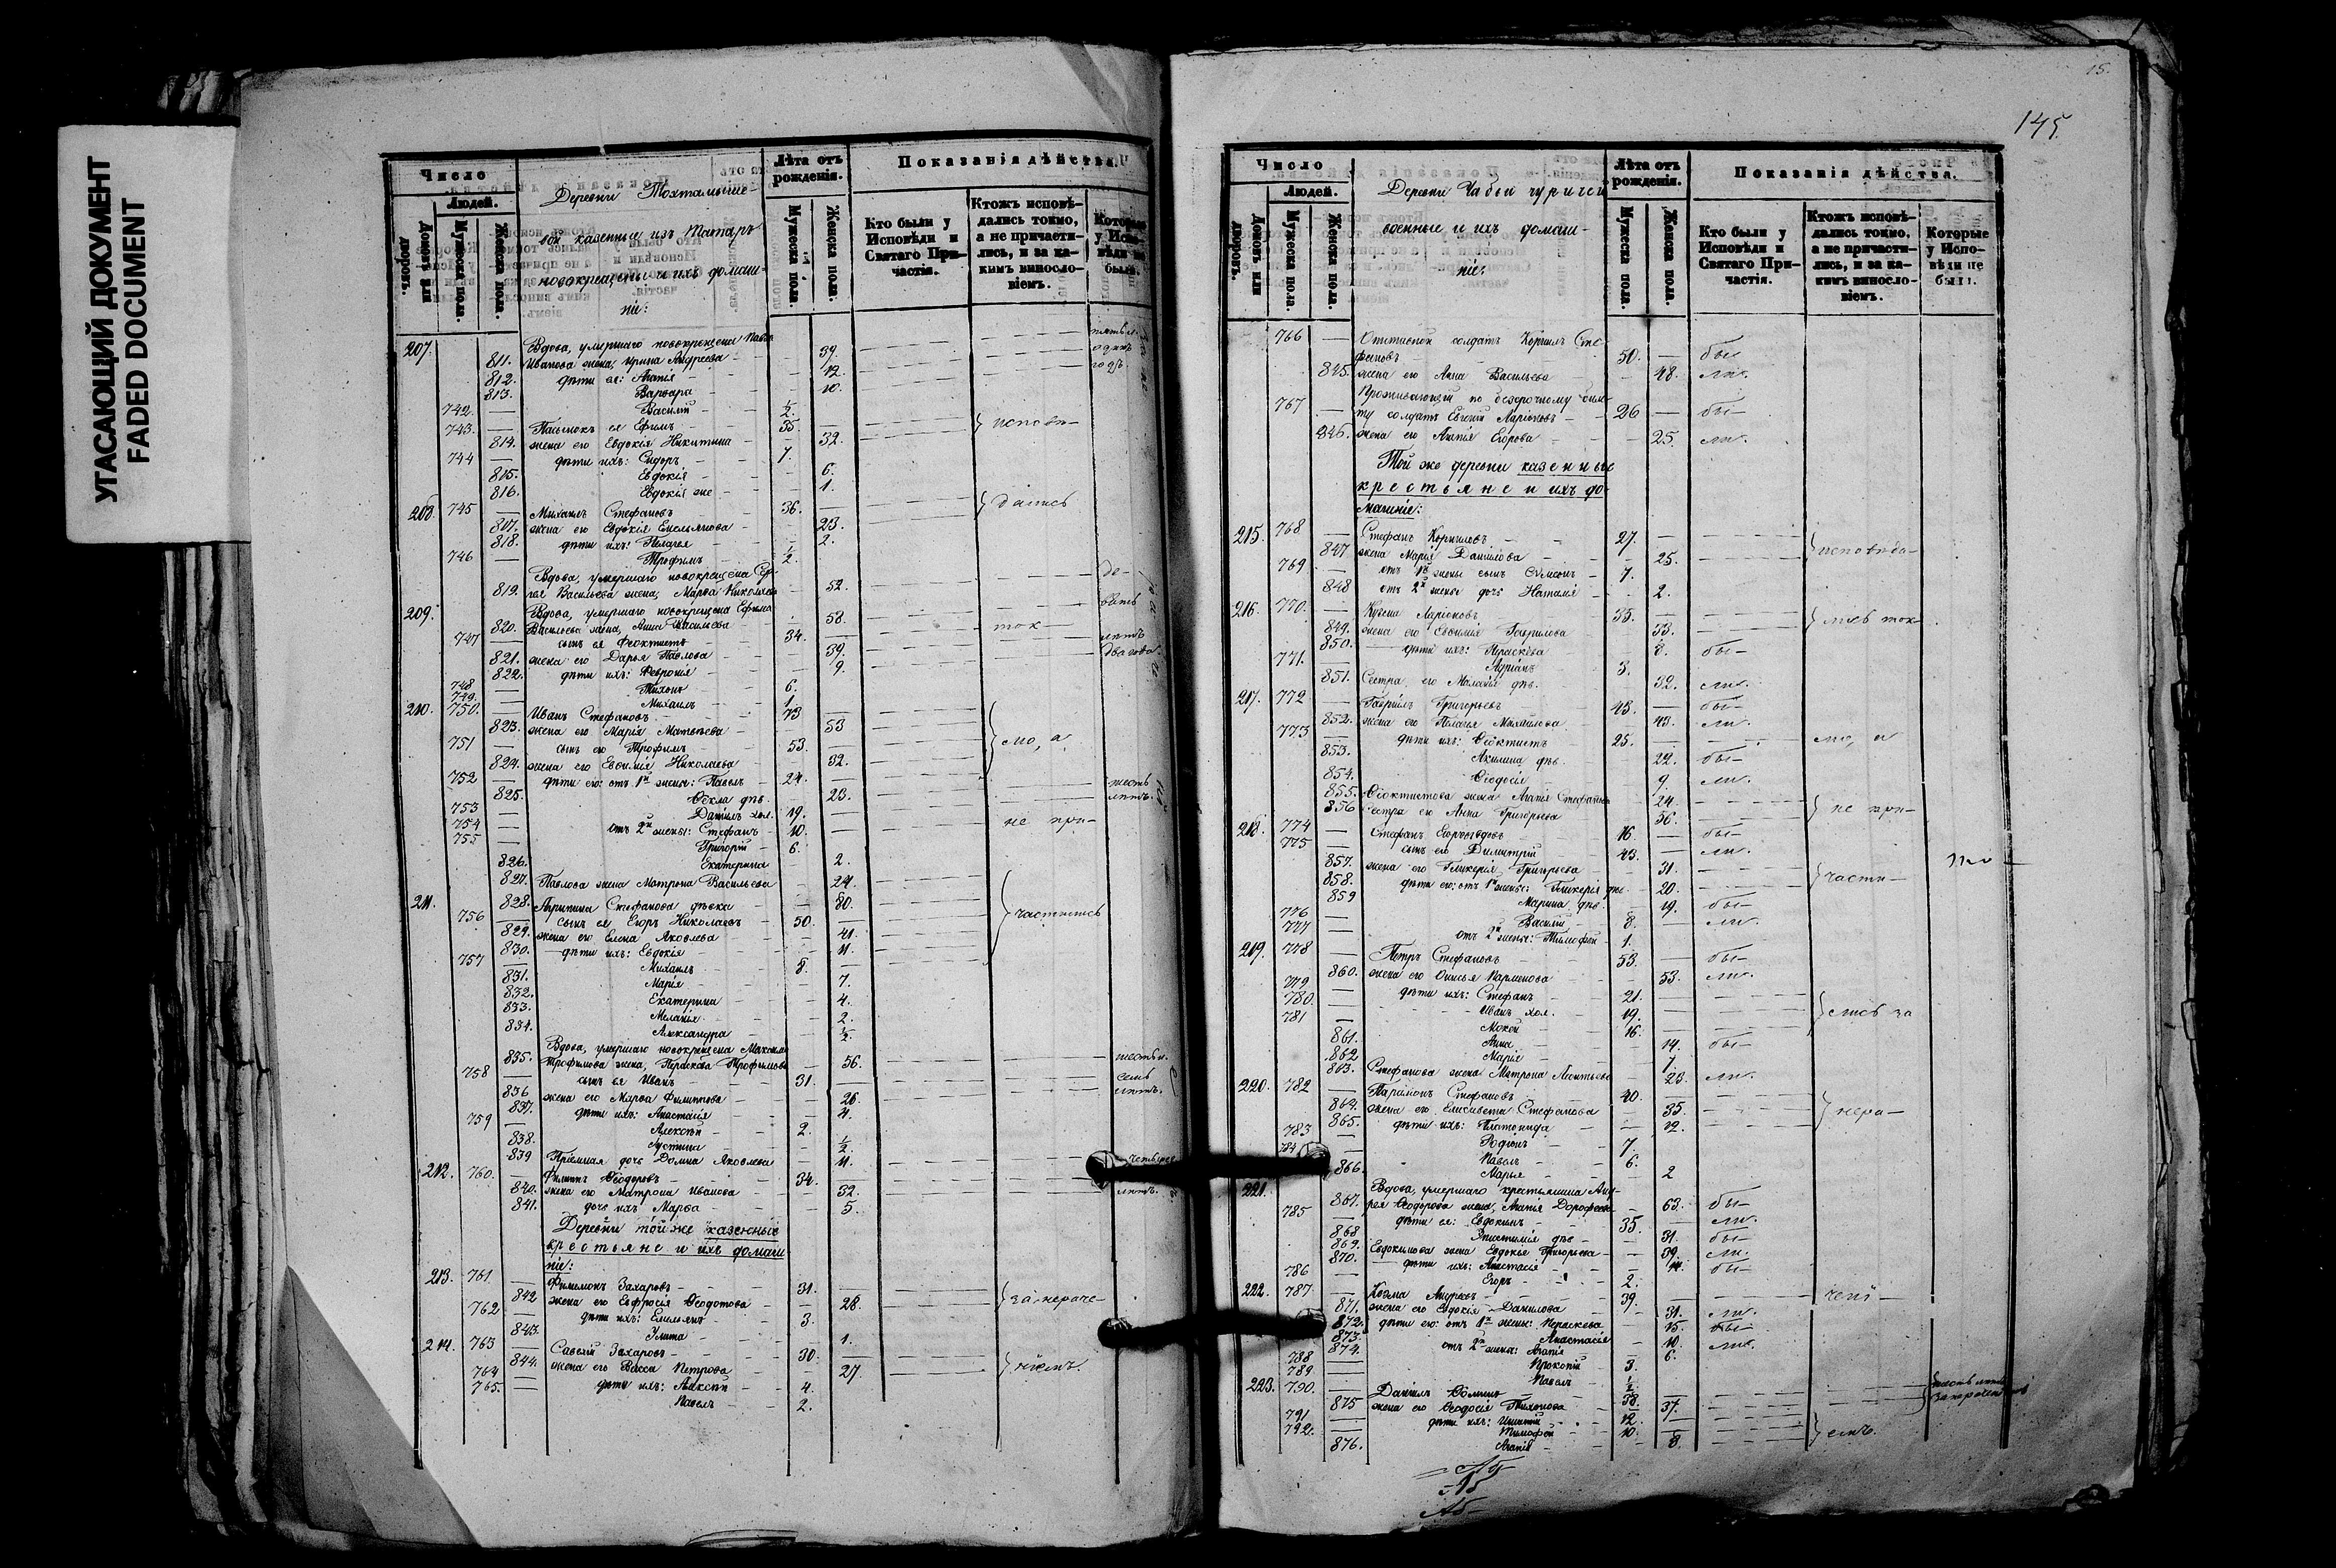 УГАСАЮЩИЙ ДОКУМЕНТ
FADED DOCUMENT
Число
Людей.
Домовъ или дворовъ.
Мужеска пола.
Женска пола.
Деревни Тохтамыше-
вой казенные изъ Татаръ
новокрещены и ихъ домаш-
ніе:
Лѣта отъ рожденія.
Мужеска пола.
Женска пола.
Показанія дѣйства.
Кто были у Исповѣди и Святаго При-частія.
Ктожъ исповѣ-дались токмо, а не причасти-лись, и за ка-кимъ винослo-віемъ.
207. Вдова, умершаго новокрещена Павла
811. Иванова жена, Ирина Андреева 39. одинъ
812. дѣти ея: Агапія 12. годъ
813. Варвара 10.
742. Василій ½.
743. Пасынокъ ея Ефимъ 35. исповѣ-
814. жена его Евдокія Никитина 32.
744 дѣти ихъ: Сидоръ 7
815. Евдокія 6.
816. Евдокія же 1.
208. 745 Михаилъ Стефановъ 36. дались
817. жена его Евдокія Емельянова 23.
818. дѣти ихъ: Пелагея 2.
746 Трофимъ ½.
Вдова, умершаго новокрещена Сер- де-
819. гея Васильева жена, Марѳа Николаева 52.
209. Вдова, умершаго новокрещена Ефима вять
820. Васильева жена, Анна Васильева 58. ток
747 сынъ ея Феоктистъ 34. лѣтъ
821. жена его Дарья Павлова 39. два года
822. дѣти ихъ: Феврония 9.
748 Тихонъ 6.
749. Михаилъ 1
210. 750. Иванъ Стефановъ 73
823. жена его Марія Матвѣева 53
751 сынъ его Трофимъ 53. мо, а
824. жена его Евѳимія Николаева 32.
752 дѣти его: отъ 1й жены: Павелъ 24. шесть
825. Ѳекла дѣв. 23. лѣтъ.
753 Даніилъ хол. 19.
754 отъ 2й жены: Стефанъ 10. не при-
755 Григорій 6.
826. Екатерина 2.
827. Павлова жена Матрона Васильева 24.
211. 828. Агрипина Стефанова дѣвка 80.
756 сынъ ея Егоръ Николаевъ 50. частились
829. жена его Елена Яковлева 41.
830. дѣти ихъ: Евдокія 11.
757 Михаилъ 8.
831. Марія 7.
832. Екатерина 4.
833. Меланія 2.
834. Александра ½
Вдова, умершаго новокрещена Максима
835. Трофимова жена, Параскева Трофимова 56.
758 сынъ ея Иванъ 31. семь
836 жена его Марѳа Филиппова 26. лѣтъ.
837. дѣти ихъ: Анастасія 4.
759 Алексѣй 2.
838. Иустина ½
839 Пріемная дочь Домна Яковлева 11.
212. 760. Филиппъ Ѳеодоровъ 34. четыре
840. жена его Матрона Иванова 32. лѣтъ.
841. дочь ихъ Марѳа 5.
Деревни той же казенные
крестьяне и ихъ домаш
ніе:
213. 761. Филимонъ Захаровъ 31.
842 жена его Евфросія Ѳеодотова 28. за нераче
762 дѣти ихъ: Емельянъ 3.
843. Улита 1.
214. 763 Савелій Захаровъ 30.
844. жена его Васса Петрова 27. ніемъ.
764 дѣти ихъ: Алексѣй 4.
765. Павелъ 2.
15.
145.
Число
Людей.
Домовъ или дворовъ.
Мужеска пола.
Женска пола.
Деревни Чабьи чуричей
военные и ихъ домаш-
ніе:
Лѣта отъ рожденія.
Мужеска пола.
Женска пола.
Показанія дѣйства.
Кто были у Исповѣди и Святаго При-частія.
Ктожъ исповѣ-дались токмо, а не причасти-лись, и за ка-кимъ винослo-віемъ.
Которые у Испо-вѣди не были.
766 Отставной солдатъ Корнилъ Сте-
фановъ 50. бы
845. жена его Анна Васильева 48. ли.
Проживающій по безсрочному биле-
767 ту солдатъ Евгеній Ларіоновъ 26 бы-
846. жена его Агапія Егорова 25. ли.
Той же деревни казенные
крестьяне и ихъ до-
машніе:
215. 768 Стефанъ Корниловъ 27.
847 жена Марія Данилова 25. исповѣда-
769 отъ 1й жены сынъ Сѵмеонъ 7.
848 отъ 2й жены дочь Наталія 2.
216. 770. Кузма Ларіоновъ 35.
849. жена его Евѳимія Гаврилова 33. лись ток-
850. дѣти ихъ: Параскева 8. бы-
771. Адріанъ 3.
851. Сестра его Меланія дѣв. 32. ли.
217. 772 Гавріилъ Григорьевъ 43. бы-
852. жена его Пелагея Михайлова 43. ли.
773 дѣти ихъ: Ѳеоктистъ 25. мо, а
853. Акилина дѣв. 22. бы-
854. Ѳеодосія 9. ли.
855. Ѳеоктистова жена Агапія Стефанова 24.
856 Сестра его Анна Григорьева 36. не при-
218. 774 Стефанъ 76. бы-
775 сынъ его Димитрій 43. ли.
857. жена его Гликерія Григорьева 31.
858. дѣти его: отъ 1й жены: Гликерія дѣв 20. части-
859 Марина дѣв. 19. бы-
776 Василій 8. ли.
777 отъ 2й жены: Тимофей 1.
219. 778 Петръ Стефановъ 53. бы-
860. жена его Онисья Парменова 53. ли.
779 дѣти ихъ: Стефанъ 21.
780. Иванъ хол. 19. лись за
781 Мокей 16.
861. Анна 14. бы-
862 Марія 7
863. Стефанова жена Матрона Леонтьева 23. ли.
220. 782 Парамонъ Стефановъ 40.
864. жена его Елисавета Стефанова 35. нера-
865. дѣти ихъ: Платонида 12.
783 Родіонъ 7.
784 Павелъ 6.
866. Марья 2
221. Вдова, умершаго крестьянина Анд-
867. рея Ѳеодорова жена, Агапія Дорофеева 63. бы-
785 дѣти ея: Евдокимъ 35. ли.
868 Епистимія дѣв 31. бы
869. Евдокимова жена Евдокія Григорьева 39. ли.
870. дѣти ихъ: Анастасія бы-
786 Егоръ 2.
222. 787 Козма Андреевъ 39. чені-
871. жена его Евдокія Данилова 31. ли.
872. дѣти его: отъ 1й жены: Параскева 15. бы-
873. Анастасія 10. ли.
874. отъ 2й жены: Агапія 6.
788 Прокопій 3.
789 Павелъ ½
223. 790. Даніилъ Ѳоминъ 38.
875 жена его Ѳеодосія Тихонова 37.
791 дѣти ихъ: Игнатій 12.
792. Тимофей 10. емъ.
876. Агапія 8.